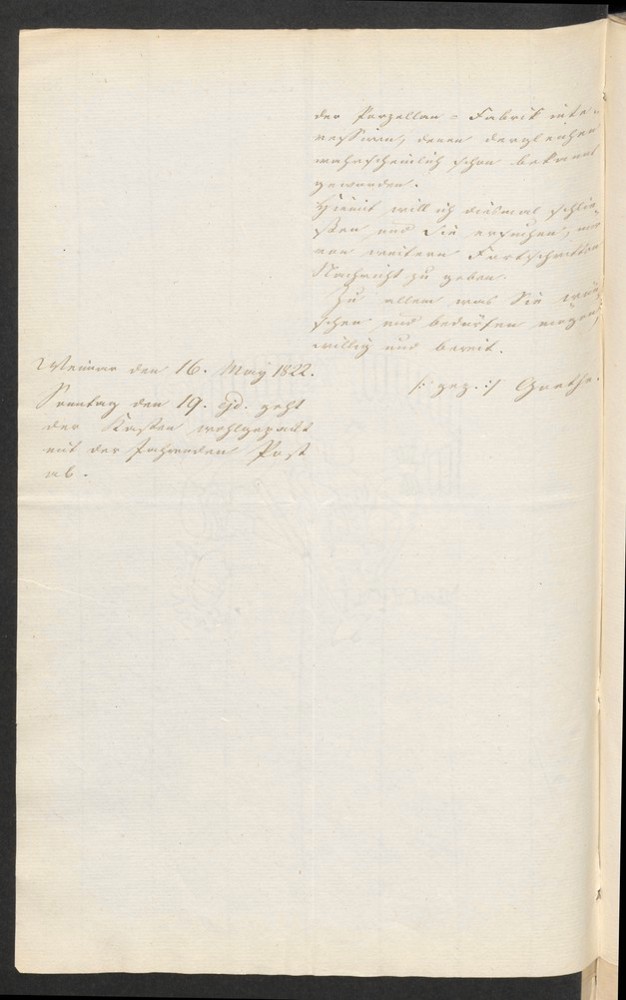 der Porzellan-Fabrik inte-
ressiren, denen dergleichen
wahrscheinlich schon bekannt
geworden.
Hiemit will ich diesmal schlie-
ßen und Sie ersuchen, mir
von weitern Fortschritten
Nachricht zu geben.
Zu allem was Sie wün-
schen und bedürfen mögen,
willig und bereit.
Weimar den 16. May 1822.
/: gez. :/ Goethe.
Sonntag den 19. ejd. geht
der Kasten wohlgepackt
mit der fahrenden Post
ab.